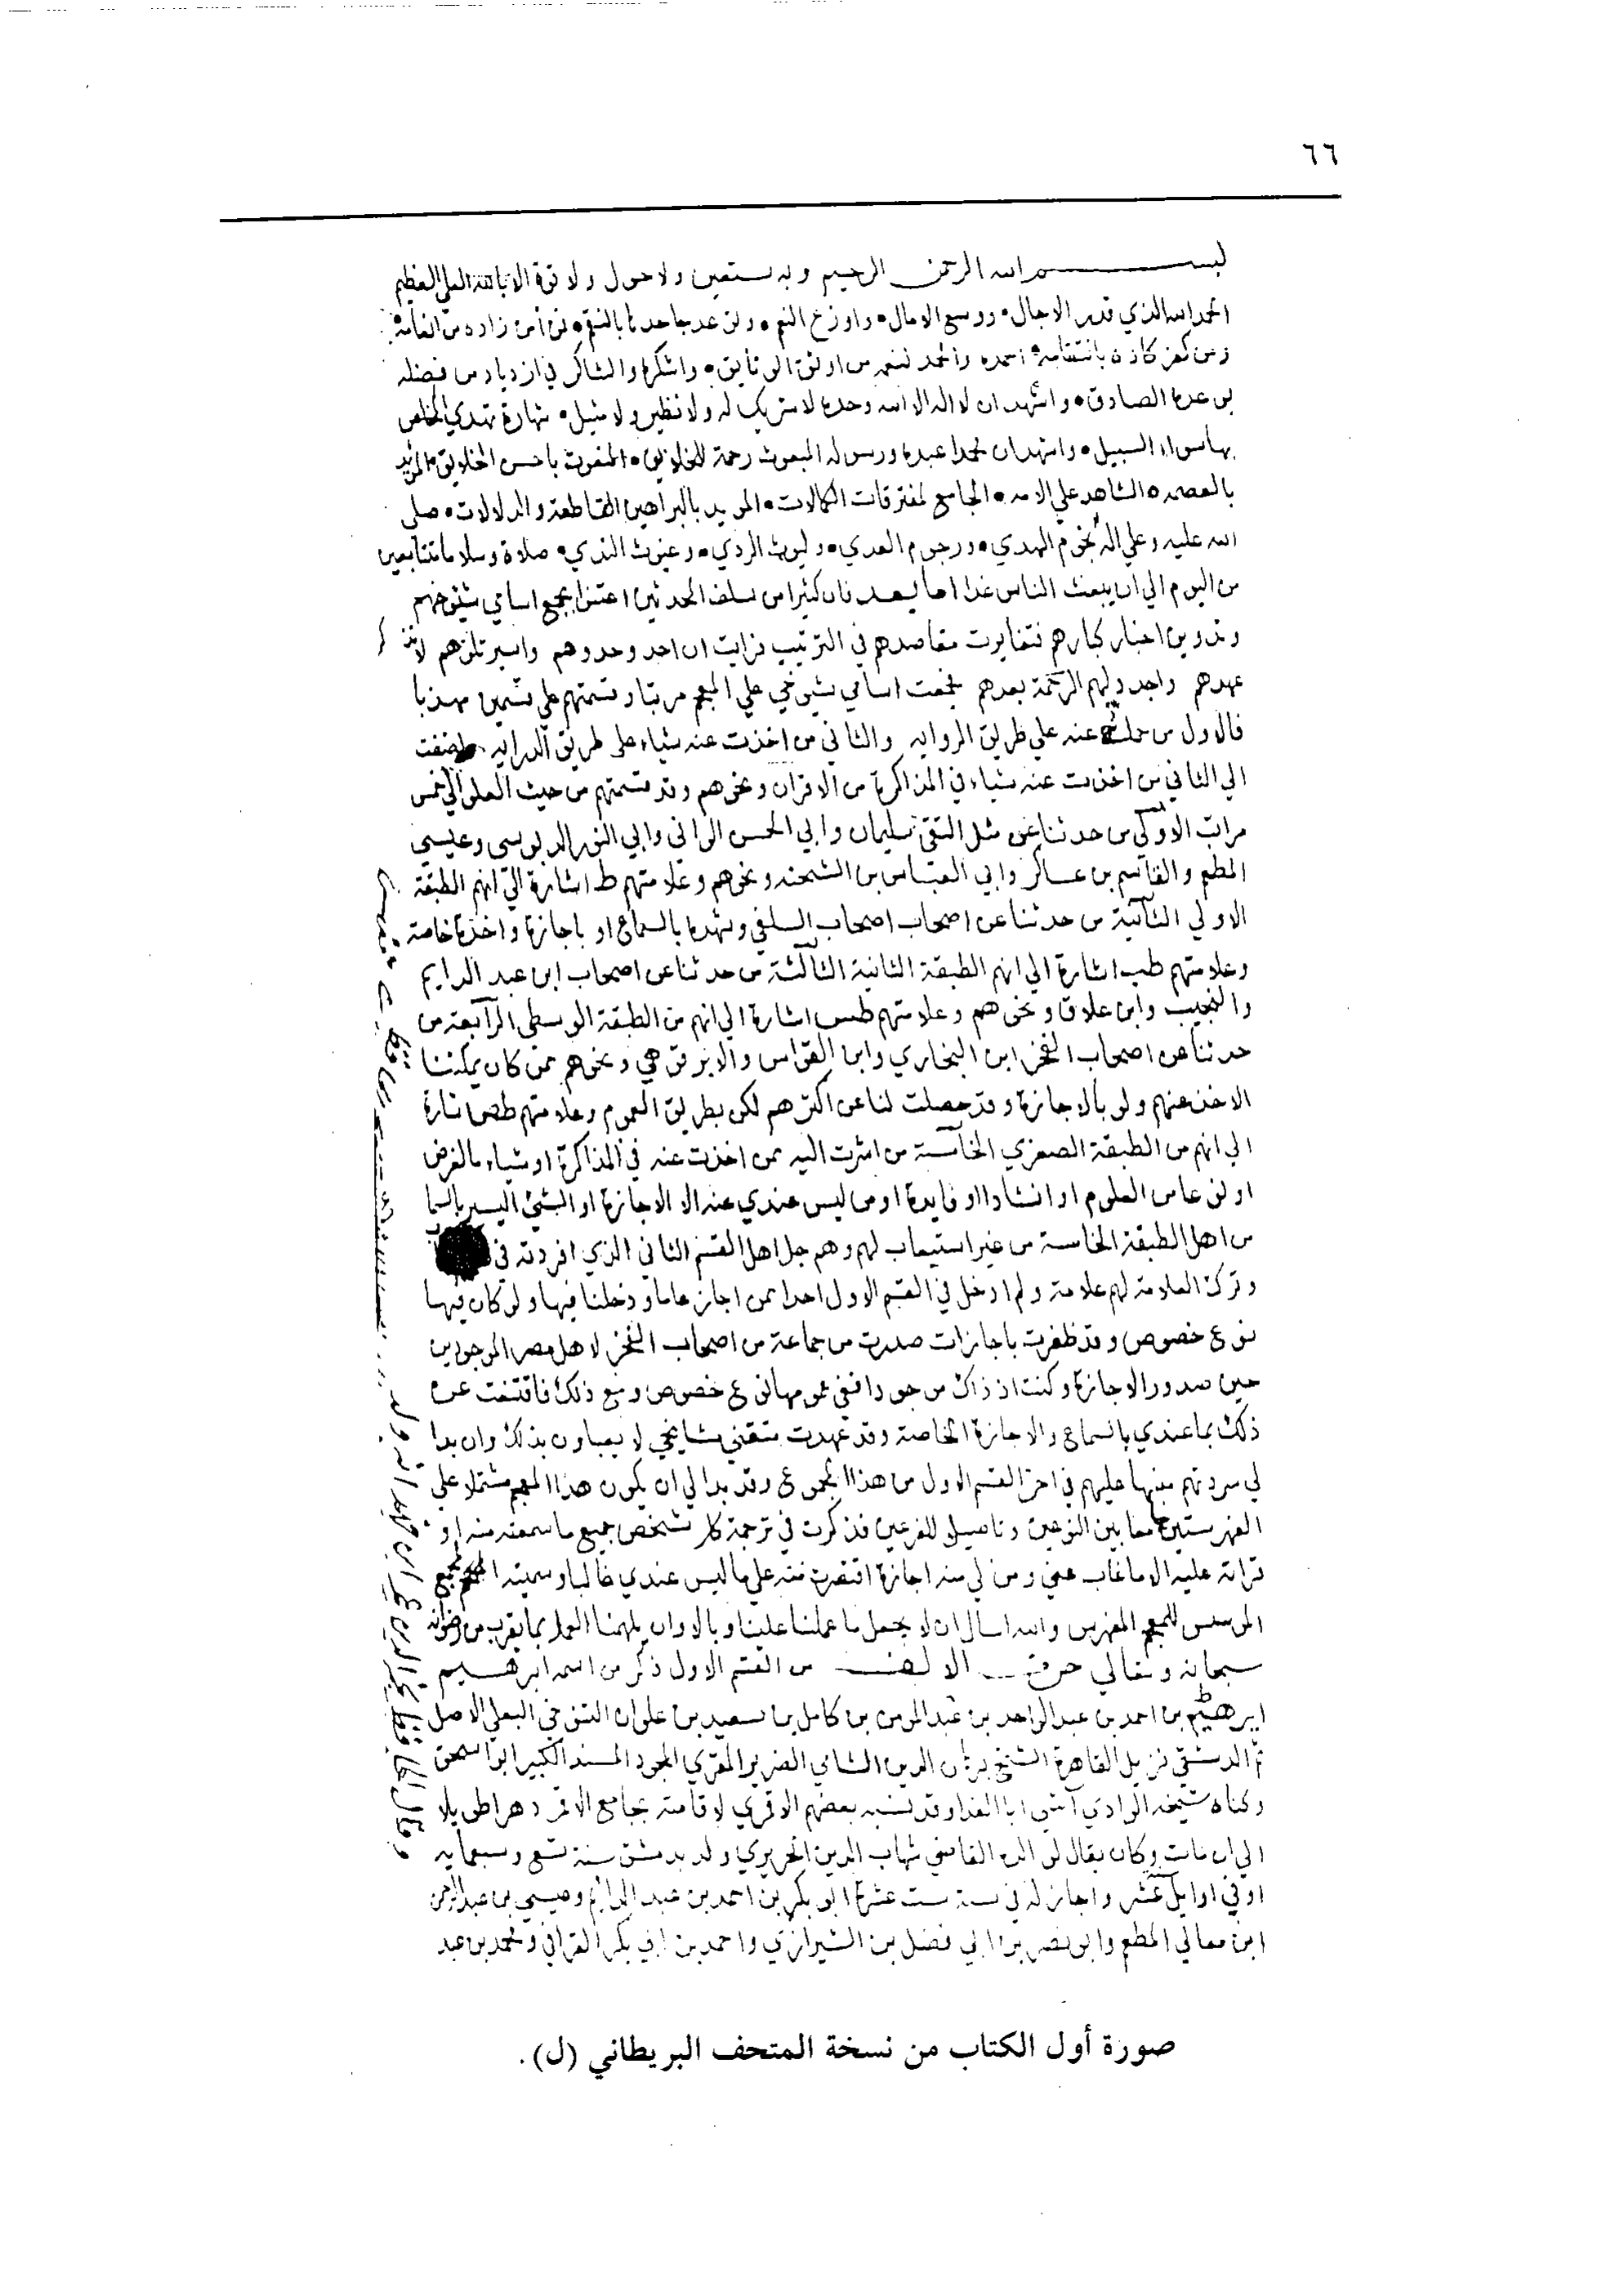 ٦٦
بسم الله الرحمن الرحيم وبه نستعين ولا حول ولا قوة الا بالله العلي العظيم
الحمد لله الذي قدر الاجال ووسع الامال واوزع النعم وتوعد جاحدها بالنقم فمن امن زاده من انعامه
ومن كفر كاده بانتقامه احمده والحمد لنعمه من اوثق الوثايق واشكره والشاكر في ازدياد من فضله
بوعده الصادق واشهد ان لا اله الا الله وحده لا شريك له ولا نظير ولا مثيل شهادة تهدي المخلص
بها سواء السبيل واشهد ان محمدا عبده ورسوله المبعوث رحمة للخلايق المنعوت باحسن الخلايق المويد
بالعصمه الشاهد علي الامه الجامع لمفترقات الكمالات المويد بالبراهين القاطعة والدلالات صلى
الله عليه وعلي اله نجوم الهدي ورجوم العدي وليوث الردي وغيوث الندي صلاة وسلاما متتابعين
من اليوم الي ان يبعث الناس غدا اما بعد فان كثيرا من سلف المحدثين اعتنوا بجمع اسامي شيوخهم
وتدوين اخبار كبارهم فتغايرت مقاصدهم في الترتيب فرايت ان احذو حذوهم واسير تلوهم لاتذكر
عهدهم واجدد لهم الرحمة بعدهم فجمعت اسامي شيوخي علي المعجم مرتبا وقسمتهم علي قسمين مهذبا
فالاول من حملت عنه علي طريق الروايه والثاني من اخذت عنه شياء على طريق الدرايه واضفت
الي الثاني من اخذت عنه شياء في المذاكرة من الاقران ونحوهم وقد قسمتهم من حيث العلو الي خمس
مراتب الاولى من حدثنا عن مثل التقي سليمان وابي الحسن الواني وابي النور الدبوسي وعيسى
المطعم والقاسم بن عساكر وابي العباس بن الشحنه ونحوهم وعلامتهم ط اشارة الي انهم الطبقة
الاولي الثانية من حدثنا عن اصحاب اصحاب السلفي وشهده بالسماع او باجازة واخذة خاصة
وعلامتهم طب اشارة الي انهم الطبقة الثانية الثالثة من حدثنا عن اصحاب ابن عبد الدايم
والنجيب وابن علاق ونحوهم وعلامتهم طس اشارة الي انهم من الطبقة الوسطى الرابعة من
حدثنا عن اصحاب الفخر ابن البخاري وابن القواس والابرقوهي ونحوهم ممن كان يمكننا
الاخذ عنهم ولو بالاجازة وقد حصلت لنا عن اكثرهم لكن بطريق العموم وعلامتهم طص اشارة
الي انهم من الطبقة الصغري الخامسة من اشرت اليه ممن اخذت عنه في المذاكرة او شياء بالعرض
او نوعا من العلوم او انشادا او فايدة او من ليس عندي عنه الا الاجازة او الشئ اليسير بالسما
من اهل الطبقة الخامسة من غير استيعاب لهم وهم جل اهل القسم الثاني الذي افردته في
وترك العلامة لهم علامة ولم ادخل في القسم الاول احدا ممن اجاز عاما ودخلنا فيها ولو كان فيها
نوع خصوص وقد ظفرت باجازات صدرت من جماعة من اصحاب الفخر لاهل مصر الموجودين
حين صدور الاجازة وكنت اذ ذاك موجودا ففي عمومها نوع خصوص ومع ذلك فاقتنعت عن
ذلك بما عندي بالسماع والاجازة الخاصة وقد عهدت متقني مشايخي لا يعباون بذلك وان بدا
لي سردتهم منبها عليهم في اخر القسم الاول من هذا المجموع وقد بدا لي ان يكون هذا المعجم مشتملا علي
الفهرست جامعا بين النوعين وتاصيل للفرعين فذكرت في ترجمة كل شخص جميع ما سمعته منه او
قراته عليه الا ما غاب عني ومن لي منه اجازة اقتصرت منه علي ما ليس عندي غالبا وسميته المجمع
الموسس للمعجم المفهرس والله اسال ان لا يجعل ما عملنا علينا وبالا وان يلهمنا العمل بما يقرب من رضوانه
سبحانه وتعالي حرف الالف من القسم الاول ذكر من اسمه ابرهيم
ابرهيم بن احمد بن عبد الواحد بن عبد المومن بن كامل بن سعيد بن علوان التنوخي البعلي الاصل
ثم الدمشقي نزيل القاهرة الشيخ برهان الدين الشامي الضرير المقري المجود المسند الكبير ابو اسحق
وكناه شيخه الوادي آشي ابا الفدا وقد نسبه بعضهم الاقمري لاقامته بجامع الاقمر دهرا طويلا
الي ان مات وكان يقال لوالده القاضي شهاب الدين الحريري ولد بدمشق سنة تسع وسبعمايه
او في اوايل عشر واجاز له في سنة ست عشرة ابو بكر بن احمد بن عبد الدايم وعيسي بن عبد الرحمن
ابن معالي المطعم وابو نصر بن ابي فضل بن الشيرازي واحمد بن ابي بكر القرافي ومحمد بن عبد
صورة أول الكتاب من نسخة المتحف البريطاني (ل).